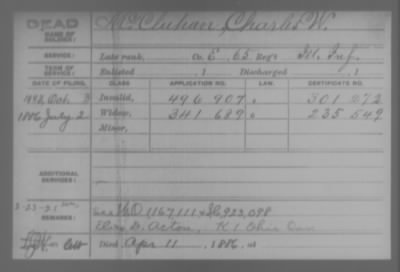 DEAD
NAME OF SOLDIER: McCluhan, Charles W.
SERVICE: Late rank, Co. E, 65 Reg't Ill. Inf.
TERM OF SERVICE: Enlisted , 1 Discharged , 1
DATE OF FILING. CLASS. APPLICATION NO. LAW. CERTIFICATE NO.
Oct. 3 Invalid, 496 907 301 272
1886 July 2 Widow, 341 689 235 549
Minor,
ADDITIONAL SERVICES:
REMARKS: 1167111 923,098
Elon D. Acton, K 1 Ohio Cav
Died Apr 11, 1886, at